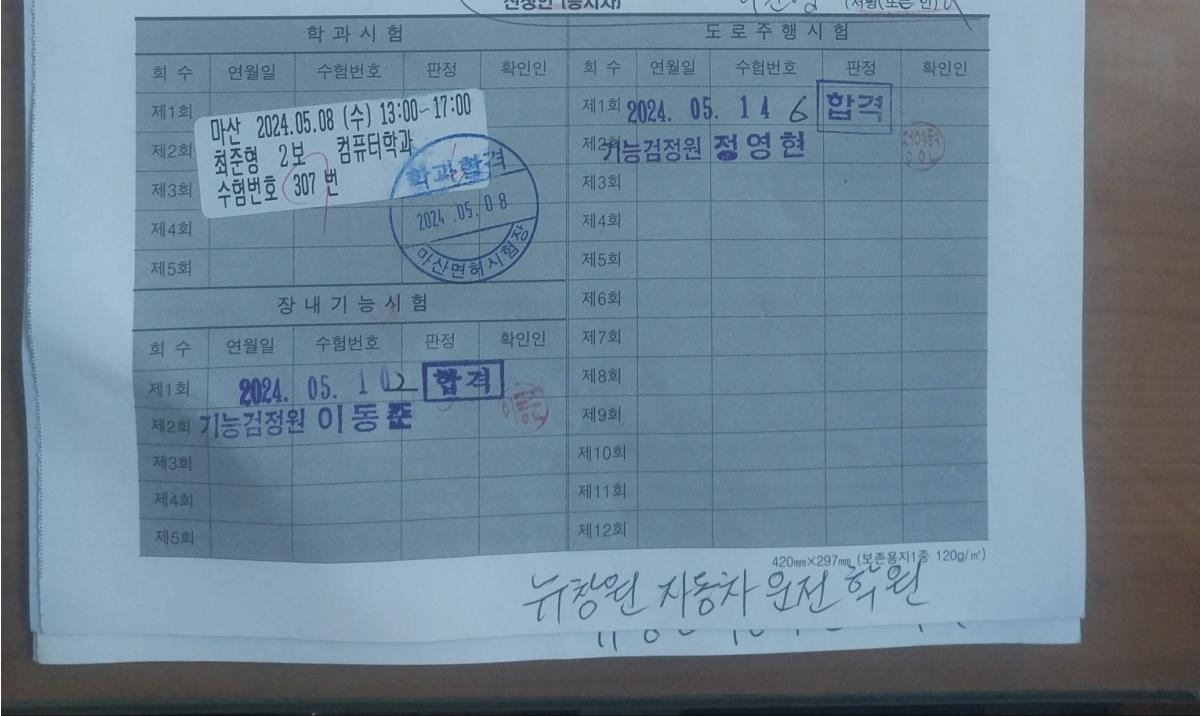 신청인 (응시자)
(서명(또는 인)
학과시험
회 수 연월일 수험번호 판정 확인인
제1회
제2회
제3회
제4회
제5회
마산 2024.05.08 (수) 13:00~17:00
최준형 2보 컴퓨터학과
수험번호 307 번
학과합격
2024.05.08
마산면허시험장
장내기능시험
회 수 연월일 수험번호 판정 확인인
제1회 2024. 05. 10 2 합격
제2회 기능검정원 이동준
제3회
제4회
제5회
도로주행시험
회 수 연월일 수험번호 판정 확인인
제1회 2024. 05. 14 6 합격
제2회 기능검정원 정영현
제3회
제4회
제5회
제6회
제7회
제8회
제9회
제10회
제11회
제12회
420㎜×297㎜ (보존용지1종 120g/㎡)
뉴창원 자동차 운전 학원